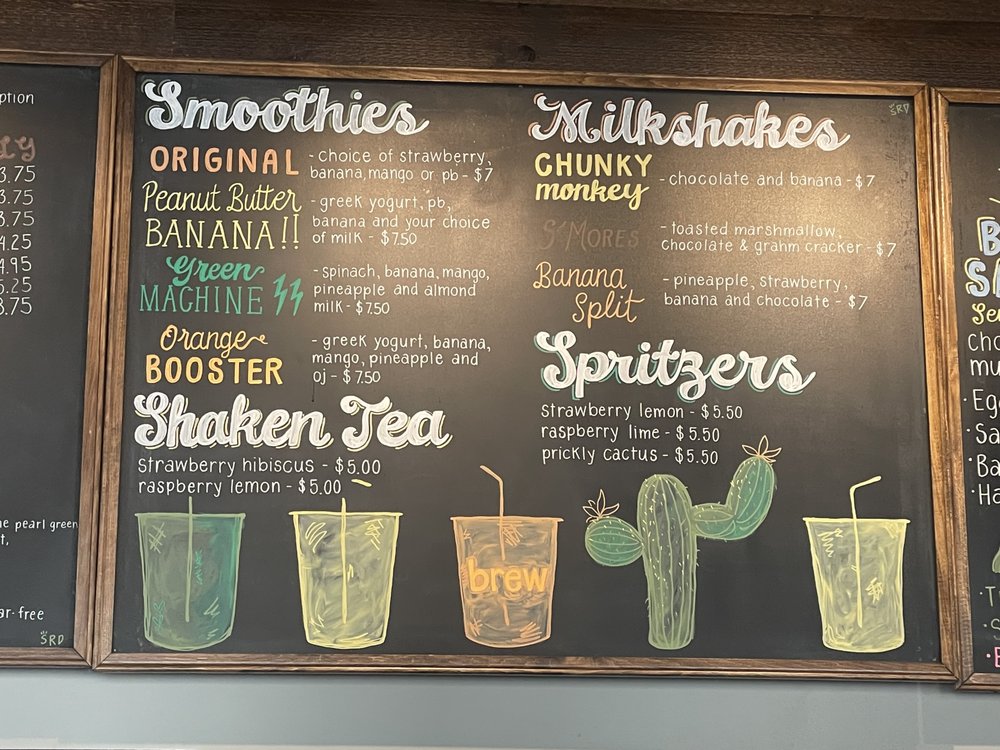 ption
LY
3.75
3.75
3.75
4.25
4.95
5.25
3.75
e pearl green
t,
ar-free
SRD
Smoothies
ORIGINAL - choice of strawberry,
banana, mango or pb - $7
Peanut Butter
BANANA!! - greek yogurt, pb,
banana and your choice
of milk - $7.50
Green
MACHINE - spinach, banana, mango,
pineapple and almond
milk - $7.50
Orange
BOOSTER - greek yogurt, banana,
mango, pineapple and
oj - $7.50
Shaken Tea
strawberry hibiscus - $5.00
raspberry lemon - $5.00
Milkshakes
SRD
CHUNKY
monkey - chocolate and banana - $7
S'MORES - toasted marshmallow,
chocolate & grahm cracker - $7
Banana
Split - pineapple, strawberry,
banana and chocolate - $7
Spritzers
strawberry lemon - $5.50
raspberry lime - $5.50
prickly cactus - $5.50
brew
B
SA
Se
cho
mu
· Eg
· Sa
· Ba
· Ha
· T
· S